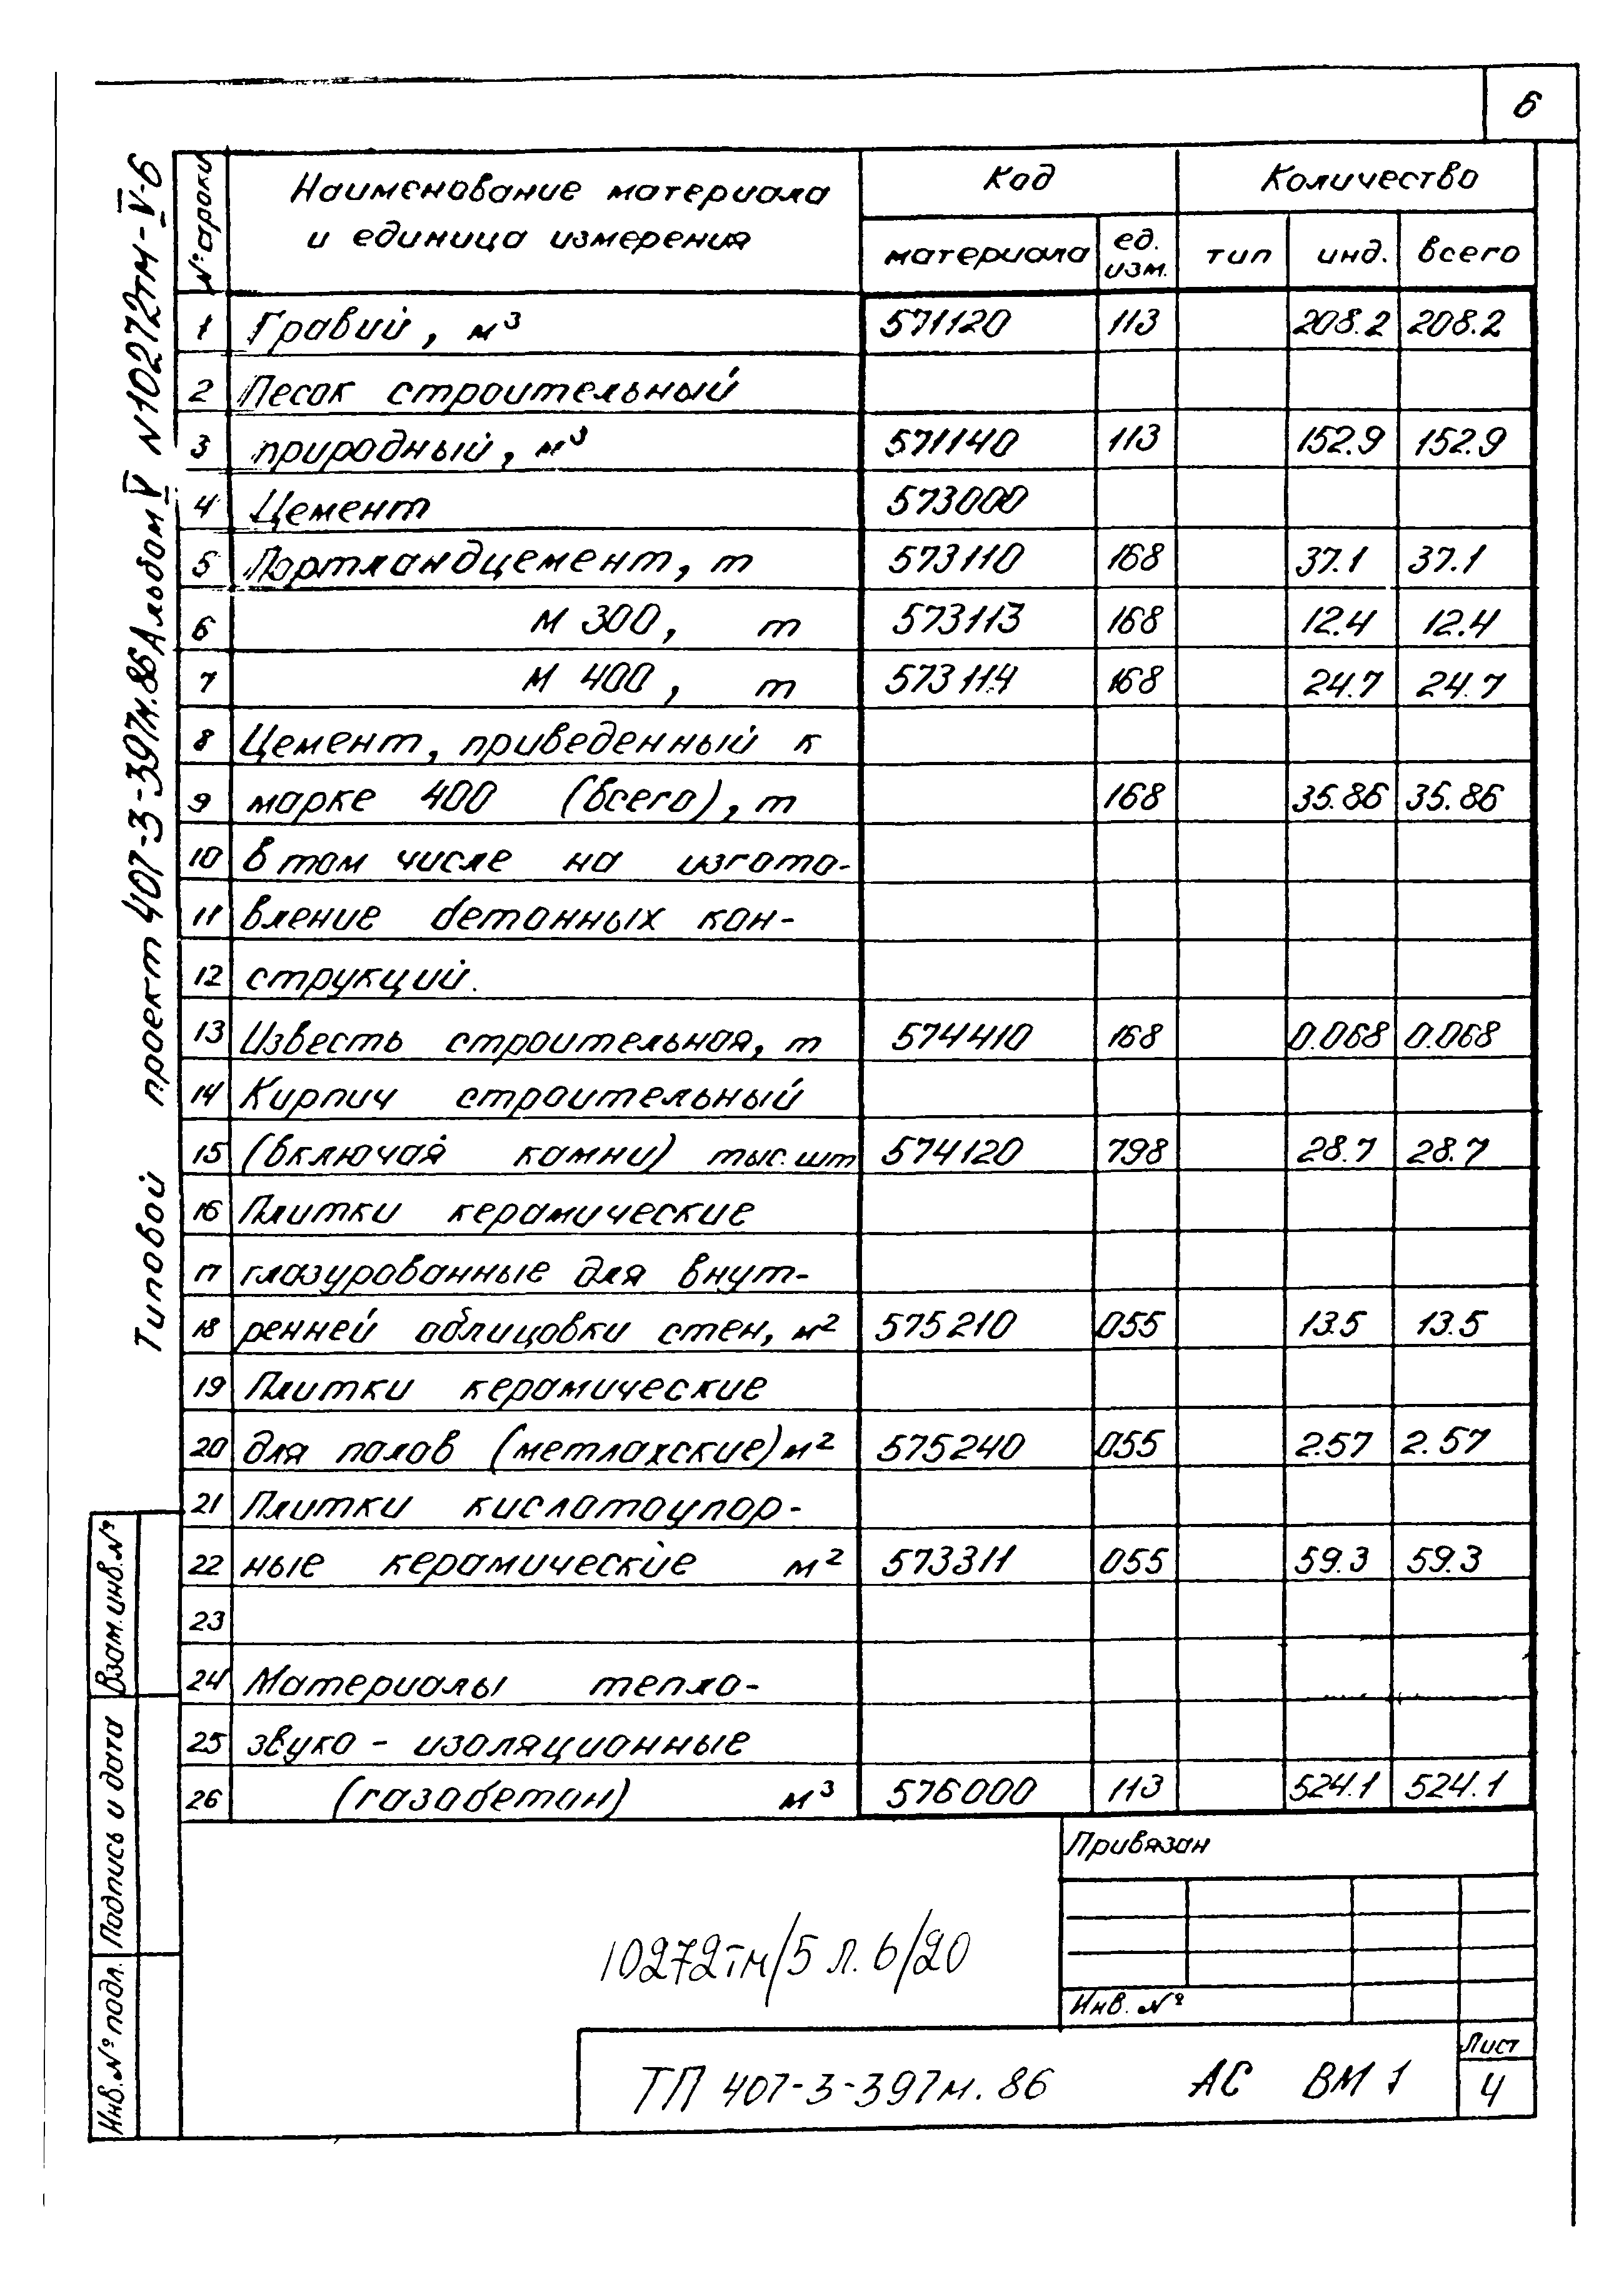 6
Типовой проект 407-3-397м.86 Альбом V N10272тм-V-6
№ строки
Наименование материала и единица измерения
Код
Количество
материала
ед. изм.
тип
инд.
всего
1 Гравий, м³ 571120 113 208.2 208.2
2 Песок строительный
3 природный, м³ 571140 113 152.9 152.9
4 Цемент 573000
5 Портландцемент, т 573110 168 37.1 37.1
6 М 300, т 573113 168 12.4 12.4
7 М 400, т 573114 168 24.7 24.7
8 Цемент, приведенный к
9 марке 400 (всего), т 168 35.86 35.86
10 в том числе на изгото-
11 вление бетонных кон-
12 струкций.
13 Известь строительная, т 574410 168 0.068 0.068
14 Кирпич строительный
15 (включая камни) тыс. шт 574120 798 28.7 28.7
16 Плитки керамические
17 глазурованные для внут-
18 ренней облицовки стен, м² 575210 055 13.5 13.5
19 Плитки керамические
20 для полов (метлахские) м² 575240 055 2.57 2.57
21 Плитки кислотоупор-
22 ные керамические м² 573311 055 59.3 59.3
23
24 Материалы тепло-
25 звуко - изоляционные
26 (газобетон) м³ 576000 113 524.1 524.1
Взам.инв.№
Подпись и дата
Инв.№ подл.
Привязан
Инв. №
10272тм/5 л.6/20
ТП 407-3-397м.86 АС ВМ 1
Лист
4